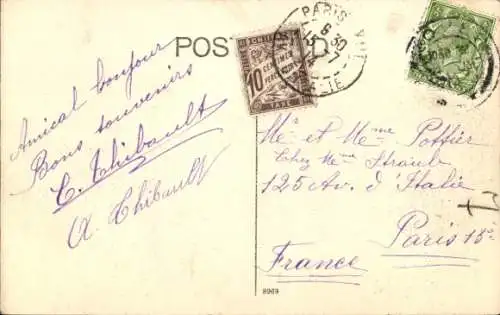 POST
D
PARIS
6 30
15 - 7
10
CENTIMES
A PERCEVOIR
TAXE
Amical bonjour
Bons souvenirs
C. Thibault
A. Thibault
Mr et Mme Pottier
Chez Mme Straub
125 Av. d'Italie
Paris 13e
France
8969